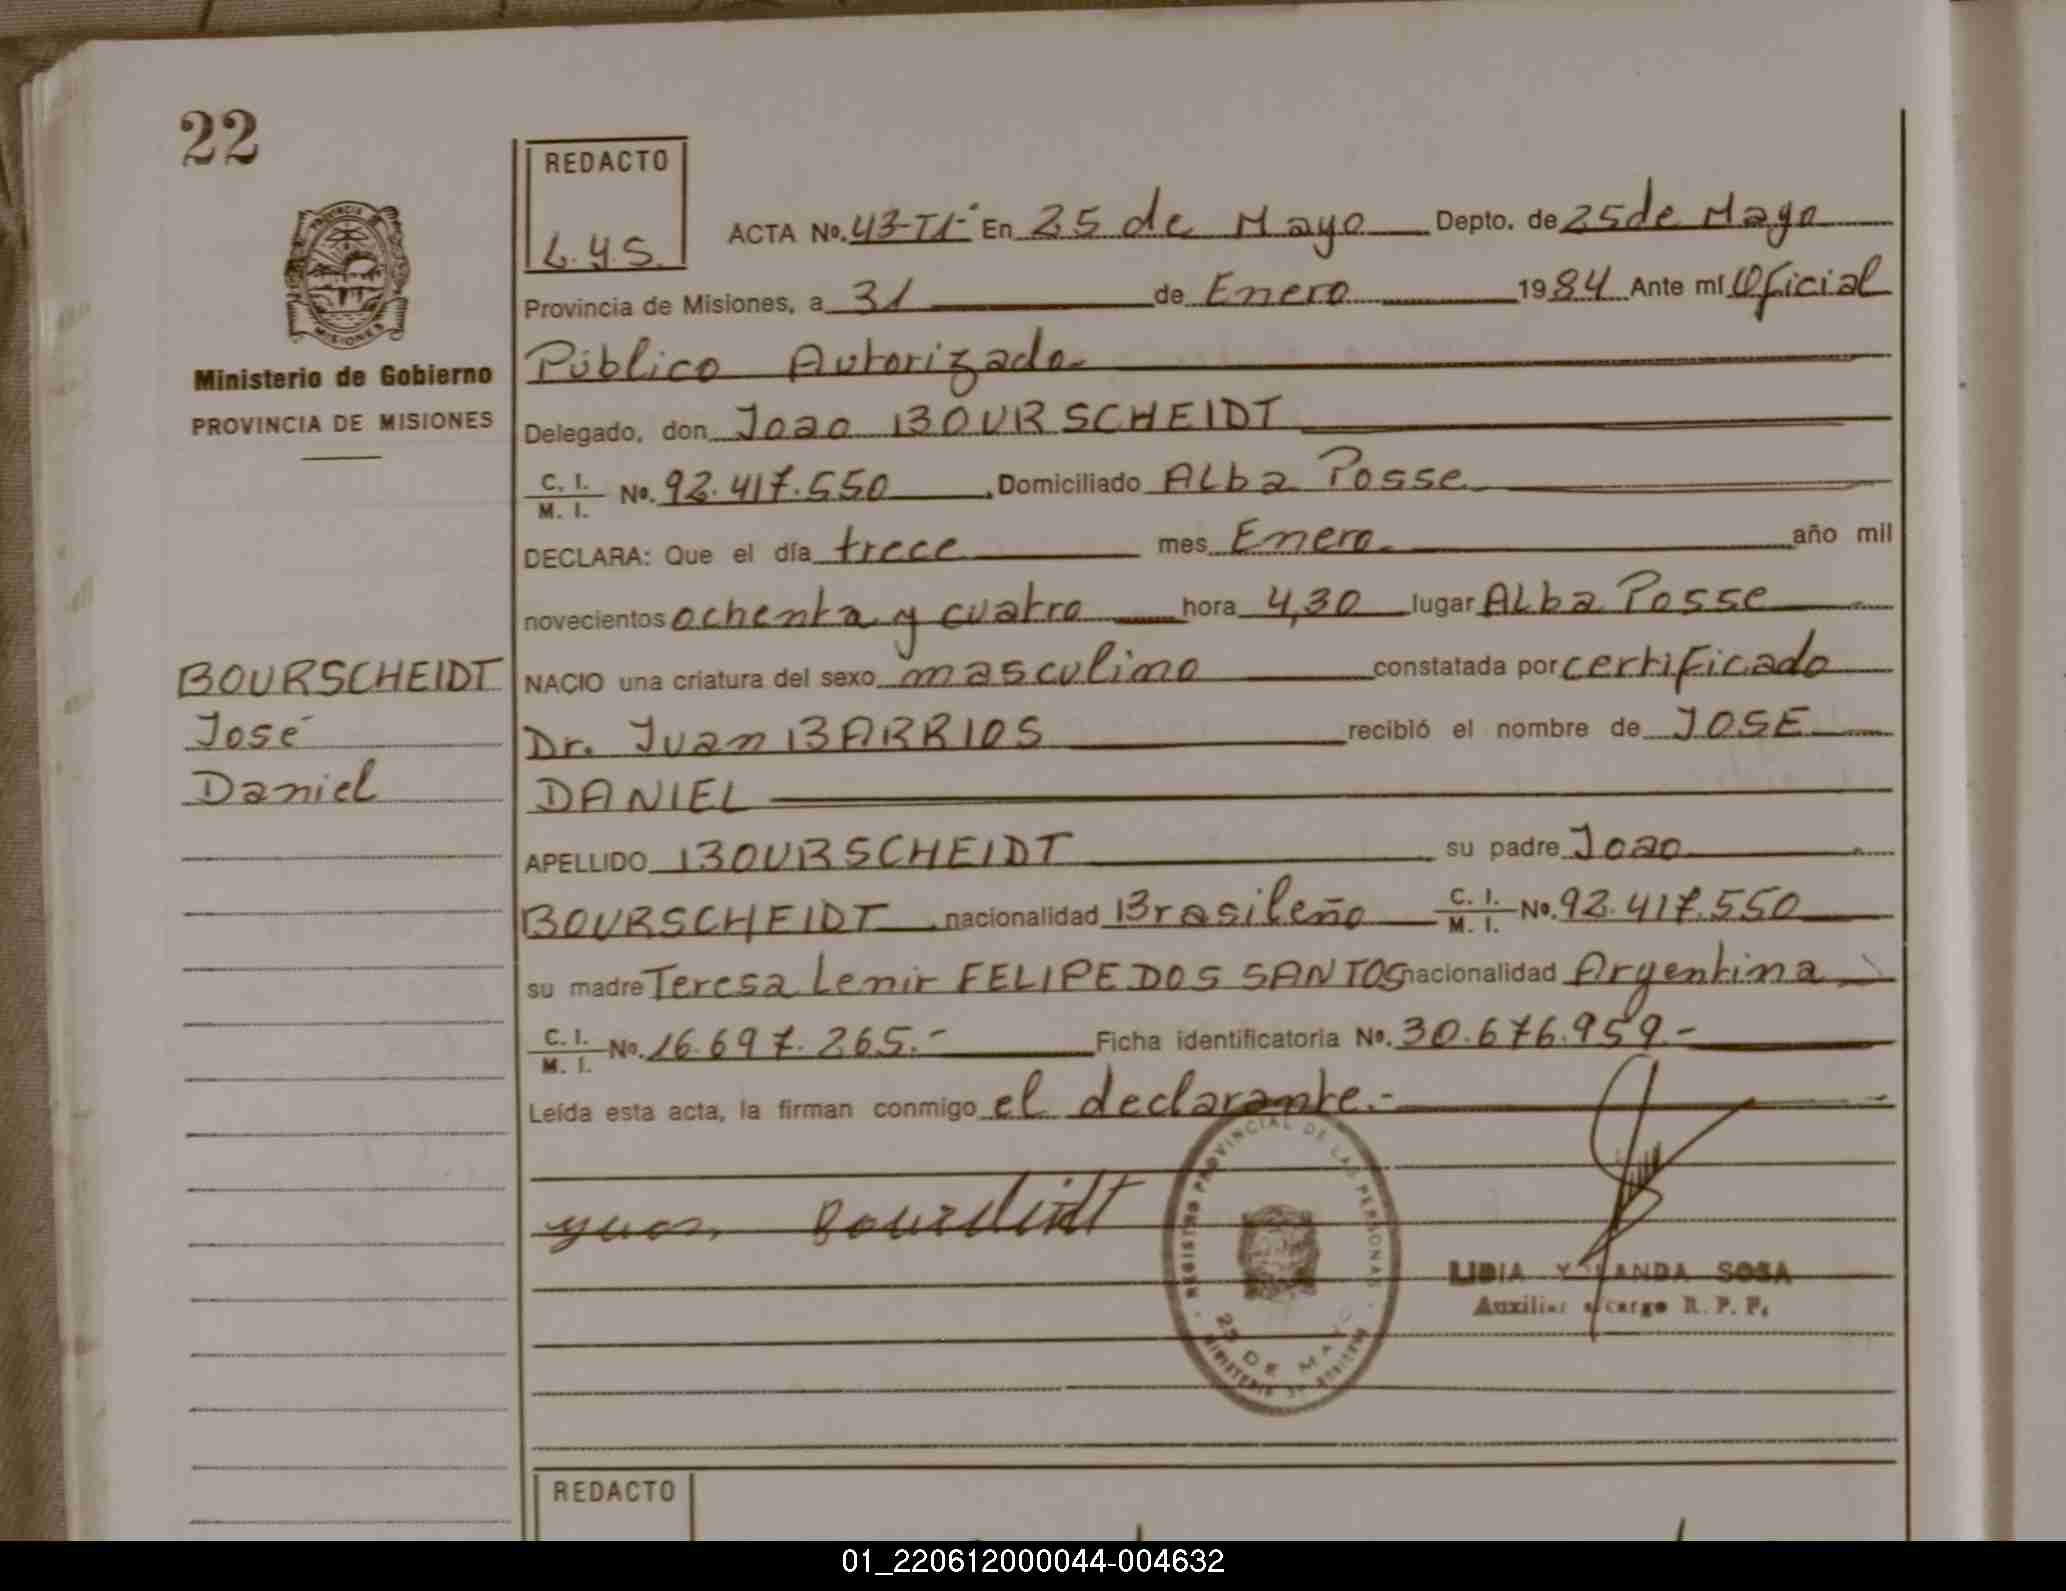 22
REDACTO
L.Y.S.
PROVINCIA DE
MISIONES
Ministerio de Gobierno
PROVINCIA DE MISIONES
ACTA No. 43-T1- En 25 de Mayo Depto. de 25 de Mayo
Provincia de Misiones, a 31 de Enero 1984 Ante mí Oficial
Público Autorizado
Delegado, don Joao BOURSCHEIDT
C. I. / M. I. No. 92.417.550, Domiciliado ALba Posse
DECLARA: Que el día trece mes Enero año mil
novecientos ochenta y cuatro hora 4,30 lugar ALba Posse
BOURSCHEIDT
José
Daniel
NACIO una criatura del sexo masculino constatada por certificado
Dr. Juan BARRIOS recibió el nombre de JOSE
DANIEL
APELLIDO BOURSCHEIDT su padre Joao
BOURSCHEIDT, nacionalidad Brasileño C. I. / M. I. No. 92.417.550
su madre Teresa Lenir FELIPE DOS SANTOS nacionalidad Argentina
C. I. / M. I. No. 16.697.265.- Ficha identificatoria No. 30.676.959.-
Leída esta acta, la firman conmigo el declarante.-
REGISTRO PROVINCIAL DE LAS PERSONAS
25 DE MAYO
MINISTERIO DE GOBIERNO
LIDIA YOLANDA SOSA
Auxiliar a cargo R. P. P.
REDACTO
01_220612000044-004632